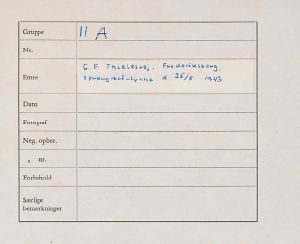 Gruppe 11 A
Nr.
Emne C. F. Thielesvej, Frederiksberg,
Sprængstofulykke d. 25/8 1943
Dato
Fotograf
Neg. opbev.
" nr.
Forbehold
Særlige
bemærkninger